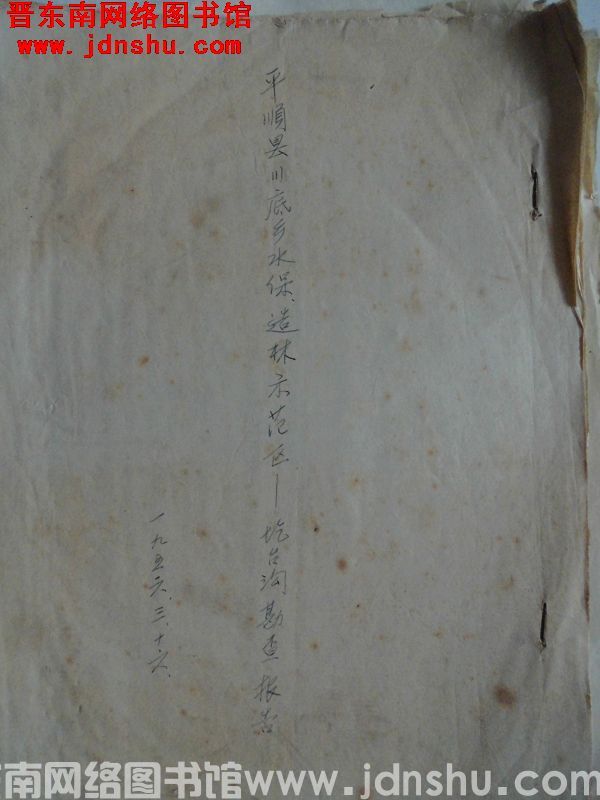 晋东南网络图书馆
www.jdnshu.com
平顺县川底乡水保、造林示范区—圪台沟勘查报告
一九五六.三.十六.
东南网络图书馆www.jdnshu.com